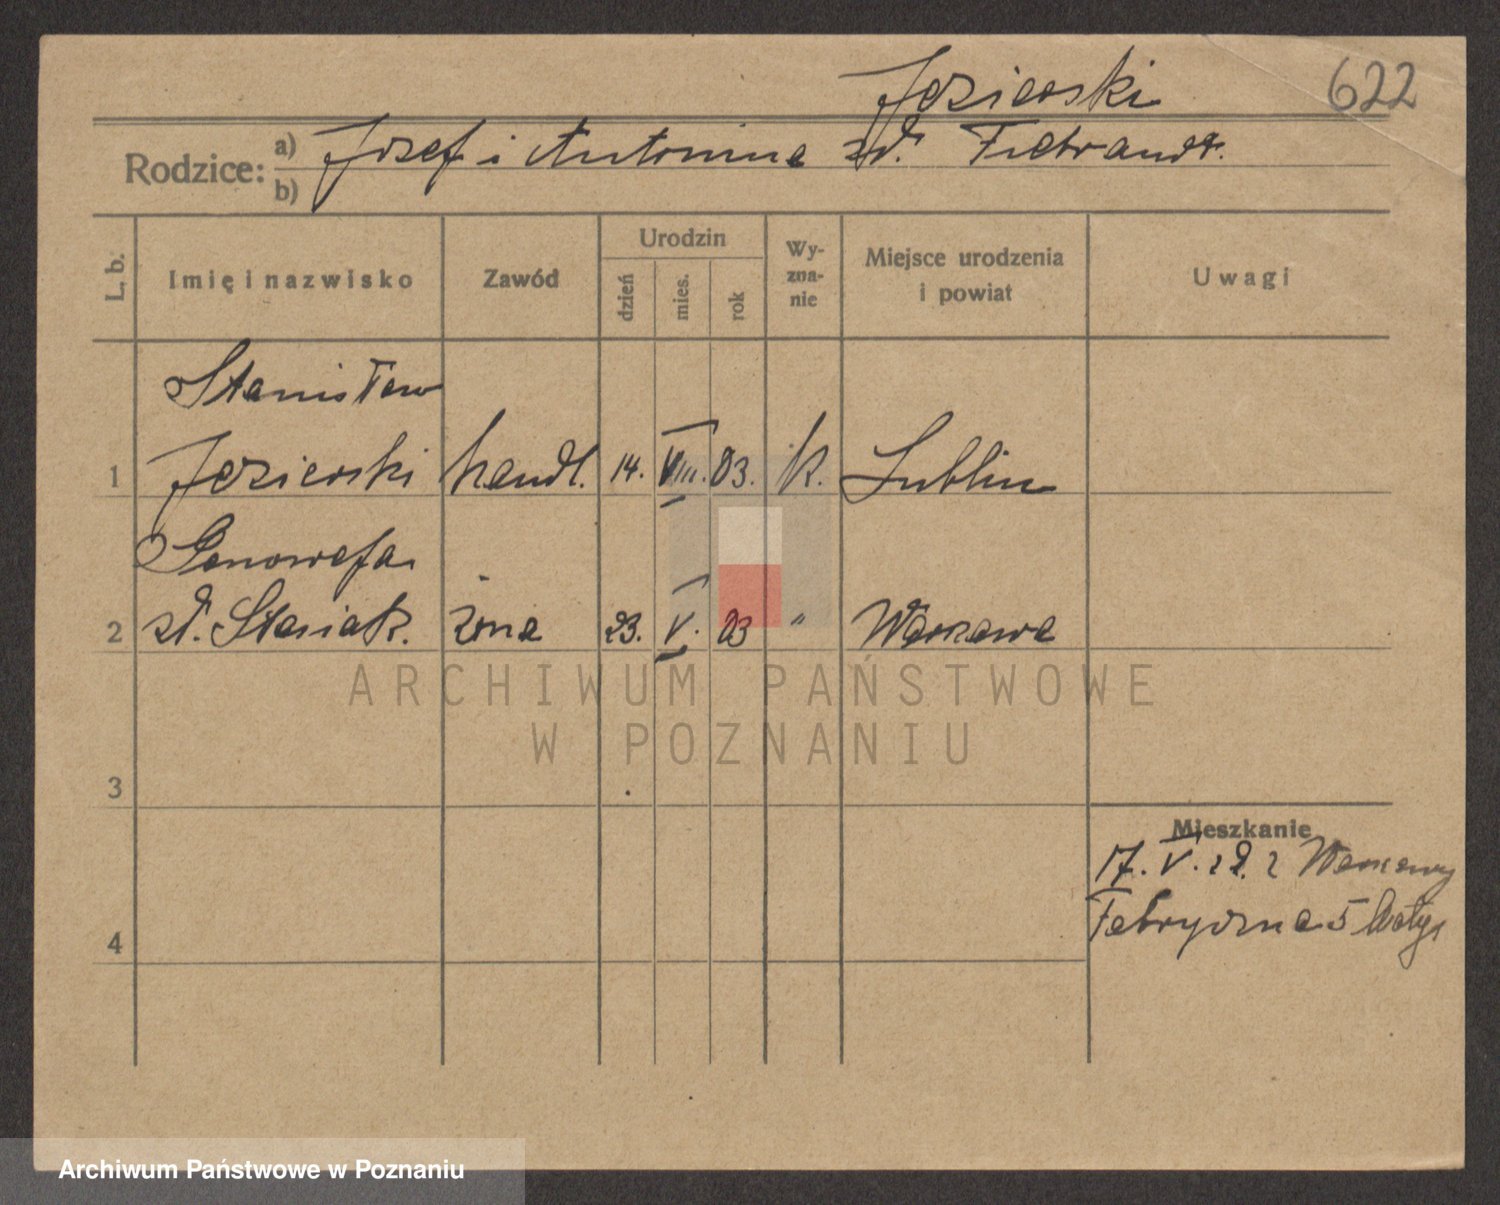 Jezierski 622
Rodzice: a) Józef i Antonina zd.
b)
L. b. Imię i nazwisko Zawód Urodzin dzień mies. rok Wy-zna-nie Miejsce urodzenia i powiat Uwagi
Stanisław
1 Jezierski handl. 14. VIII. 03. k. Lublin
Genowefa
2 zd. Stasiak. żona 23. V. 03 " Warszawa
ARCHIWUM PAŃSTWOWE
W POZNANIU
3
Mieszkanie
17. V. 29. z Warszawy
Fabryczna 5
4
Archiwum Państwowe w Poznaniu